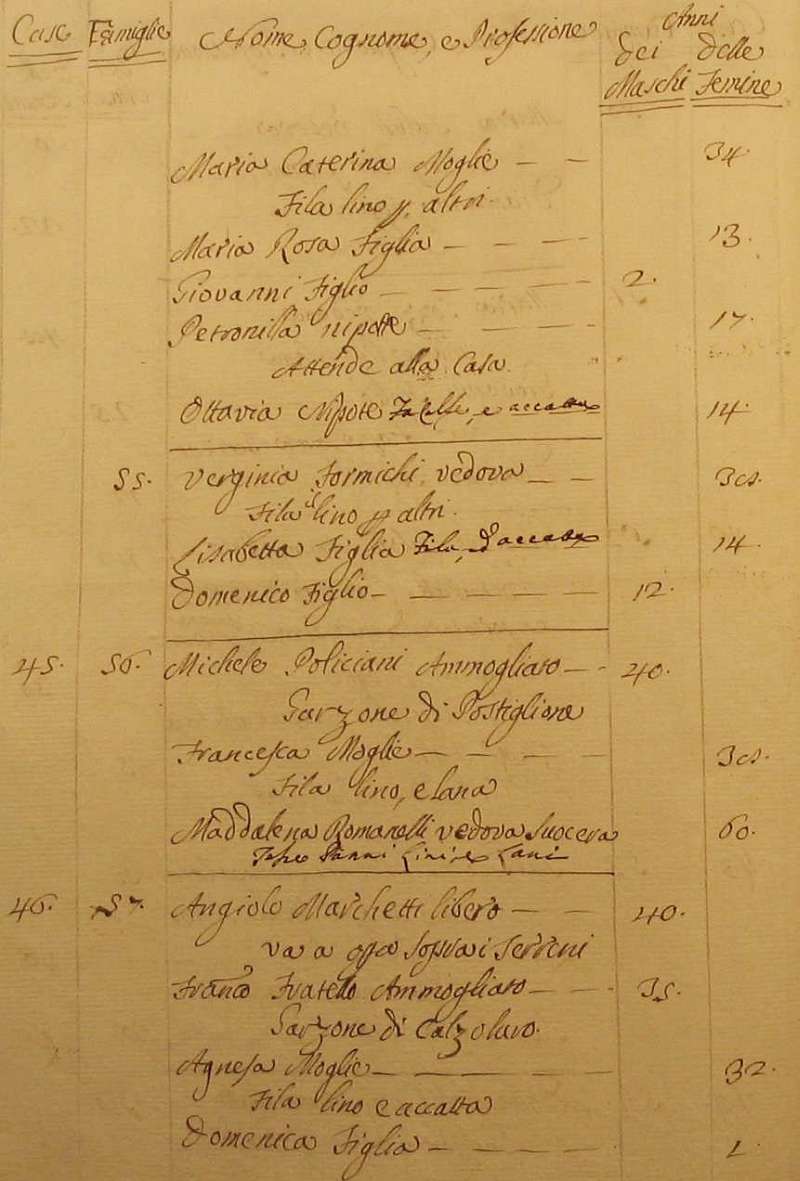 Case Famiglie Nome, Cognome, e Professione Anni
dei Maschi delle Femine
Maria Caterina Moglie — — 34.
Fila lino p. altri.
Maria Rosa Figlia — — — 13.
Giovanni Figlio — — — — 2.
Petronilla nipote — — — 17.
Attende alla Casa.
Ottavia Nipote e accatta 14.
55. Verginia Formichi vedova — —
Fila il lino p altri.
Lisabetta Figlia Fila, e accatta 14.
Domenico Figlio — — — — 12.
45. 56. Michele Policiani Ammogliato — - 40.
Garzone di Postiglione
Francesca Moglie — — — —
Fila lino, e lana
Maddalena Romanelli vedova Suocera 60.
Tesse Panni Lini, e Lani
46. 57. Angiolo Marchetti libero — — 40.
va a opa sopra i Terreni
Franco Fratello Ammogliato — — - 35.
Garzone di Calzolaro.
Agnesa Moglie — — — — 32.
Fila lino e accatta
Domenica Figlia — — — — 1.